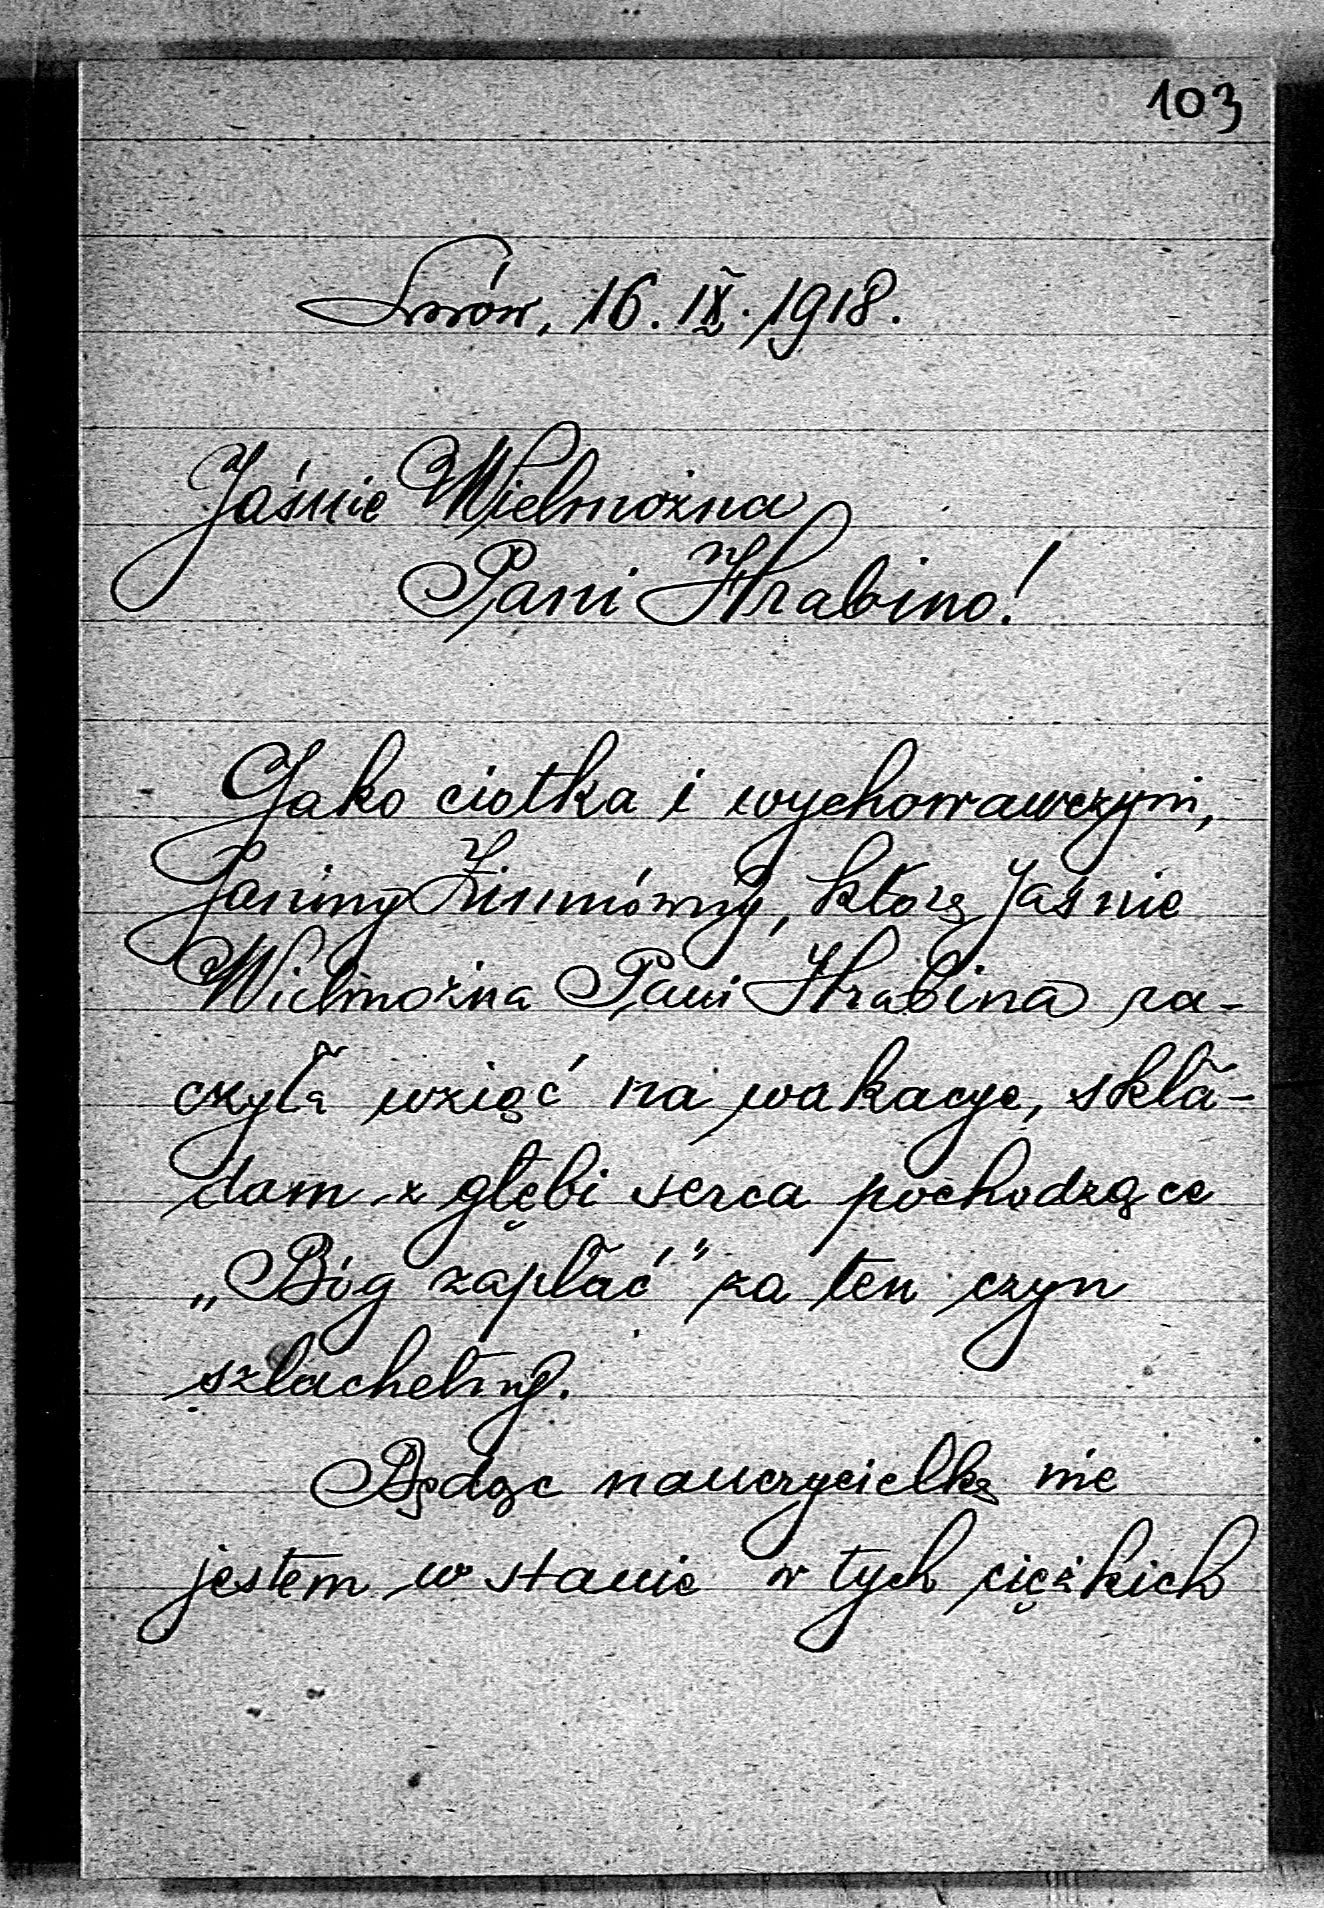 103
Lwów, 16. IX. 1918.
Jaśnie Wielmożna
Pani Hrabino!
Jako ciotka i wychowawczyni,
Janiny Zimmówny, którą Jaśnie
Wielmożna Pani Hrabina ra-
czyła wziąć na wakacye, skła-
dam z głębi serca pochodzące
„Bóg zapłać" za ten czyn
szlachetny.
Będąc nauczycielką nie
jestem w stanie w tych ciężkich